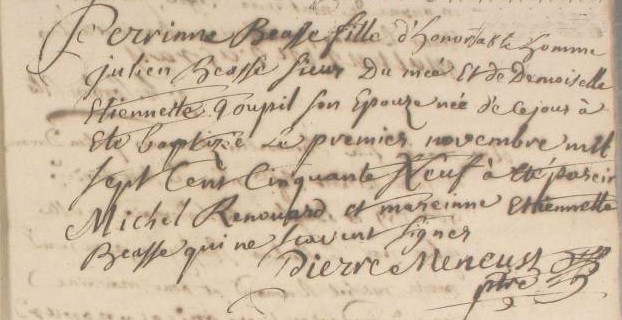 Perrinne Beasse fille d'honorable homme
julien Beasse Sieur Du meé Et de Demoiselle
Etiennette Goupil son Epouze née de ce jour à
Eté baptizée Le premier novembre mil
sept Cent Cinquante Neuf à Eté parein
Michel Renouard et mareinne Etiennette
Beasse qui ne scavent signer
Pierre Meneust
ptre